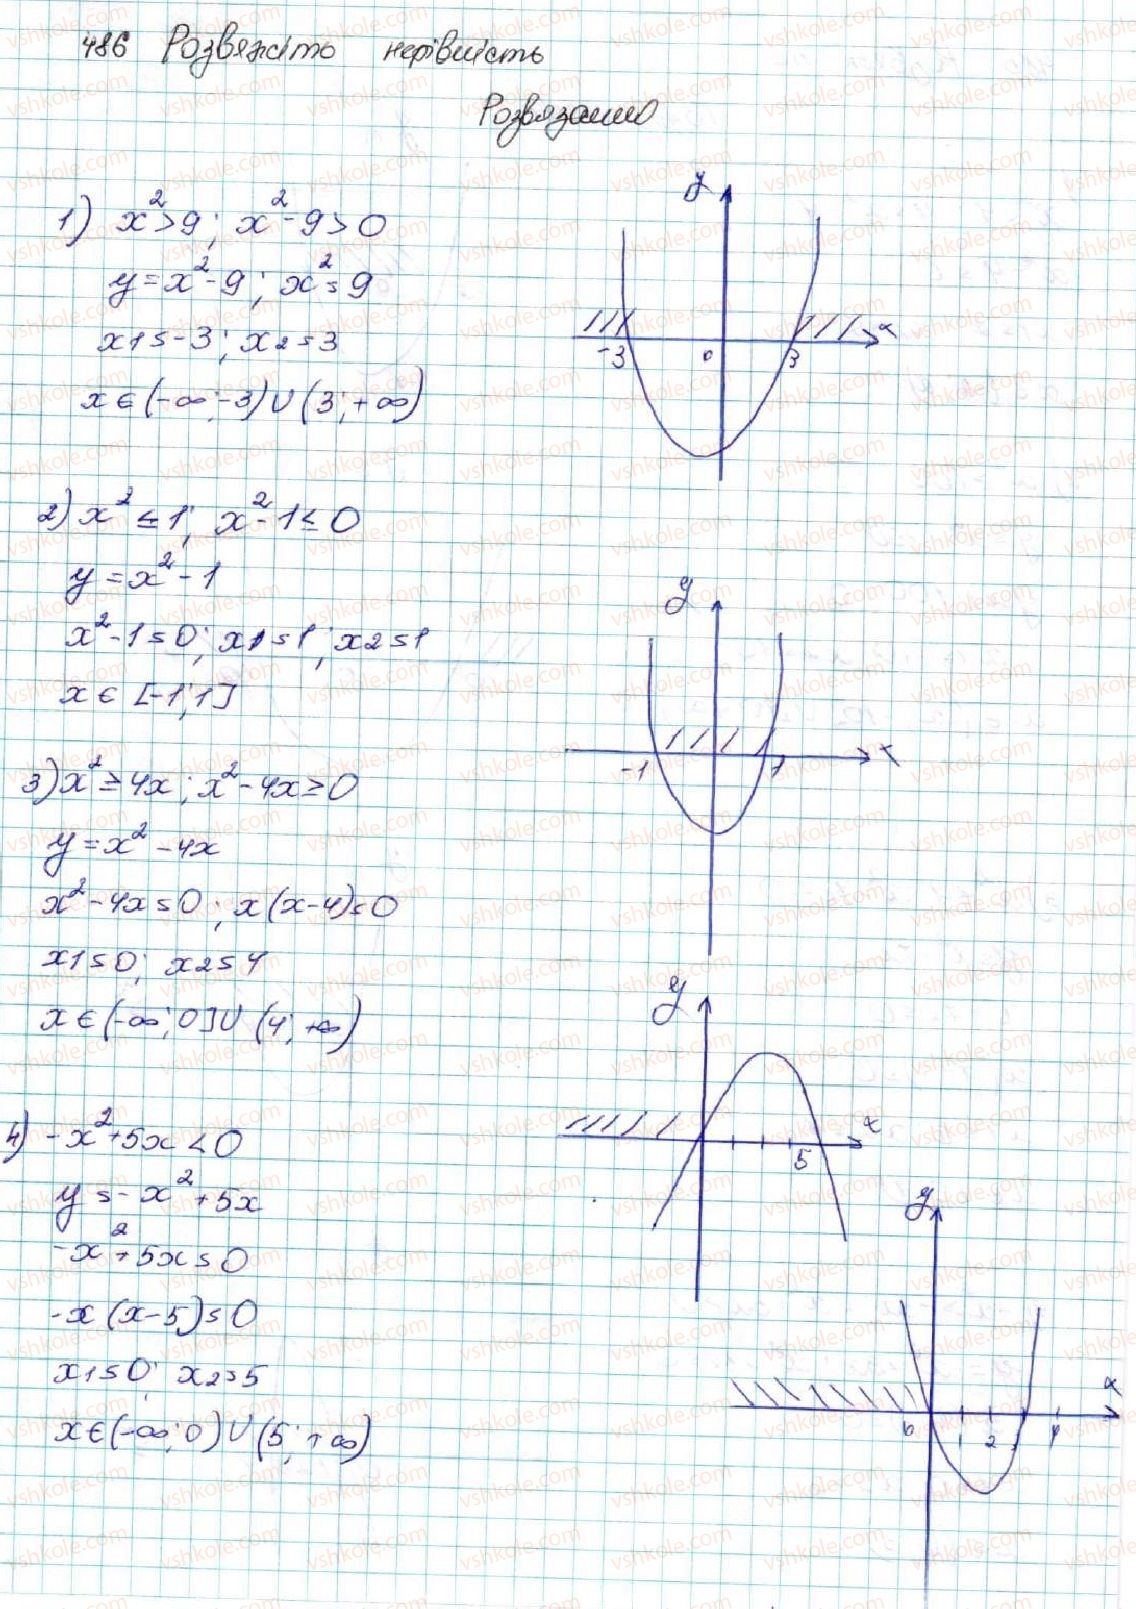 486 Розвяжіть нерівність
Розвязання
1) x² > 9; x² - 9 > 0
y = x² - 9; x² = 9
x1 = -3; x2 = 3
x ∈ (-∞; -3) ∪ (3; +∞)
y
x
-3 0 3
2) x² ≤ 1; x² - 1 ≤ 0
y = x² - 1
x² - 1 = 0; x1 = 1; x2 = 1
x ∈ [-1; 1]
y
x
-1 1
3) x² ≥ 4x; x² - 4x ≥ 0
y = x² - 4x
x² - 4x = 0; x(x-4) = 0
x1 = 0; x2 = 4
x ∈ (-∞; 0] ∪ (4; +∞)
y
x
5
4) -x² + 5x < 0
y = -x² + 5x
-x² + 5x = 0
-x(x-5) = 0
x1 = 0; x2 = 5
x ∈ (-∞; 0) ∪ (5; +∞)
y
x
0 1 2